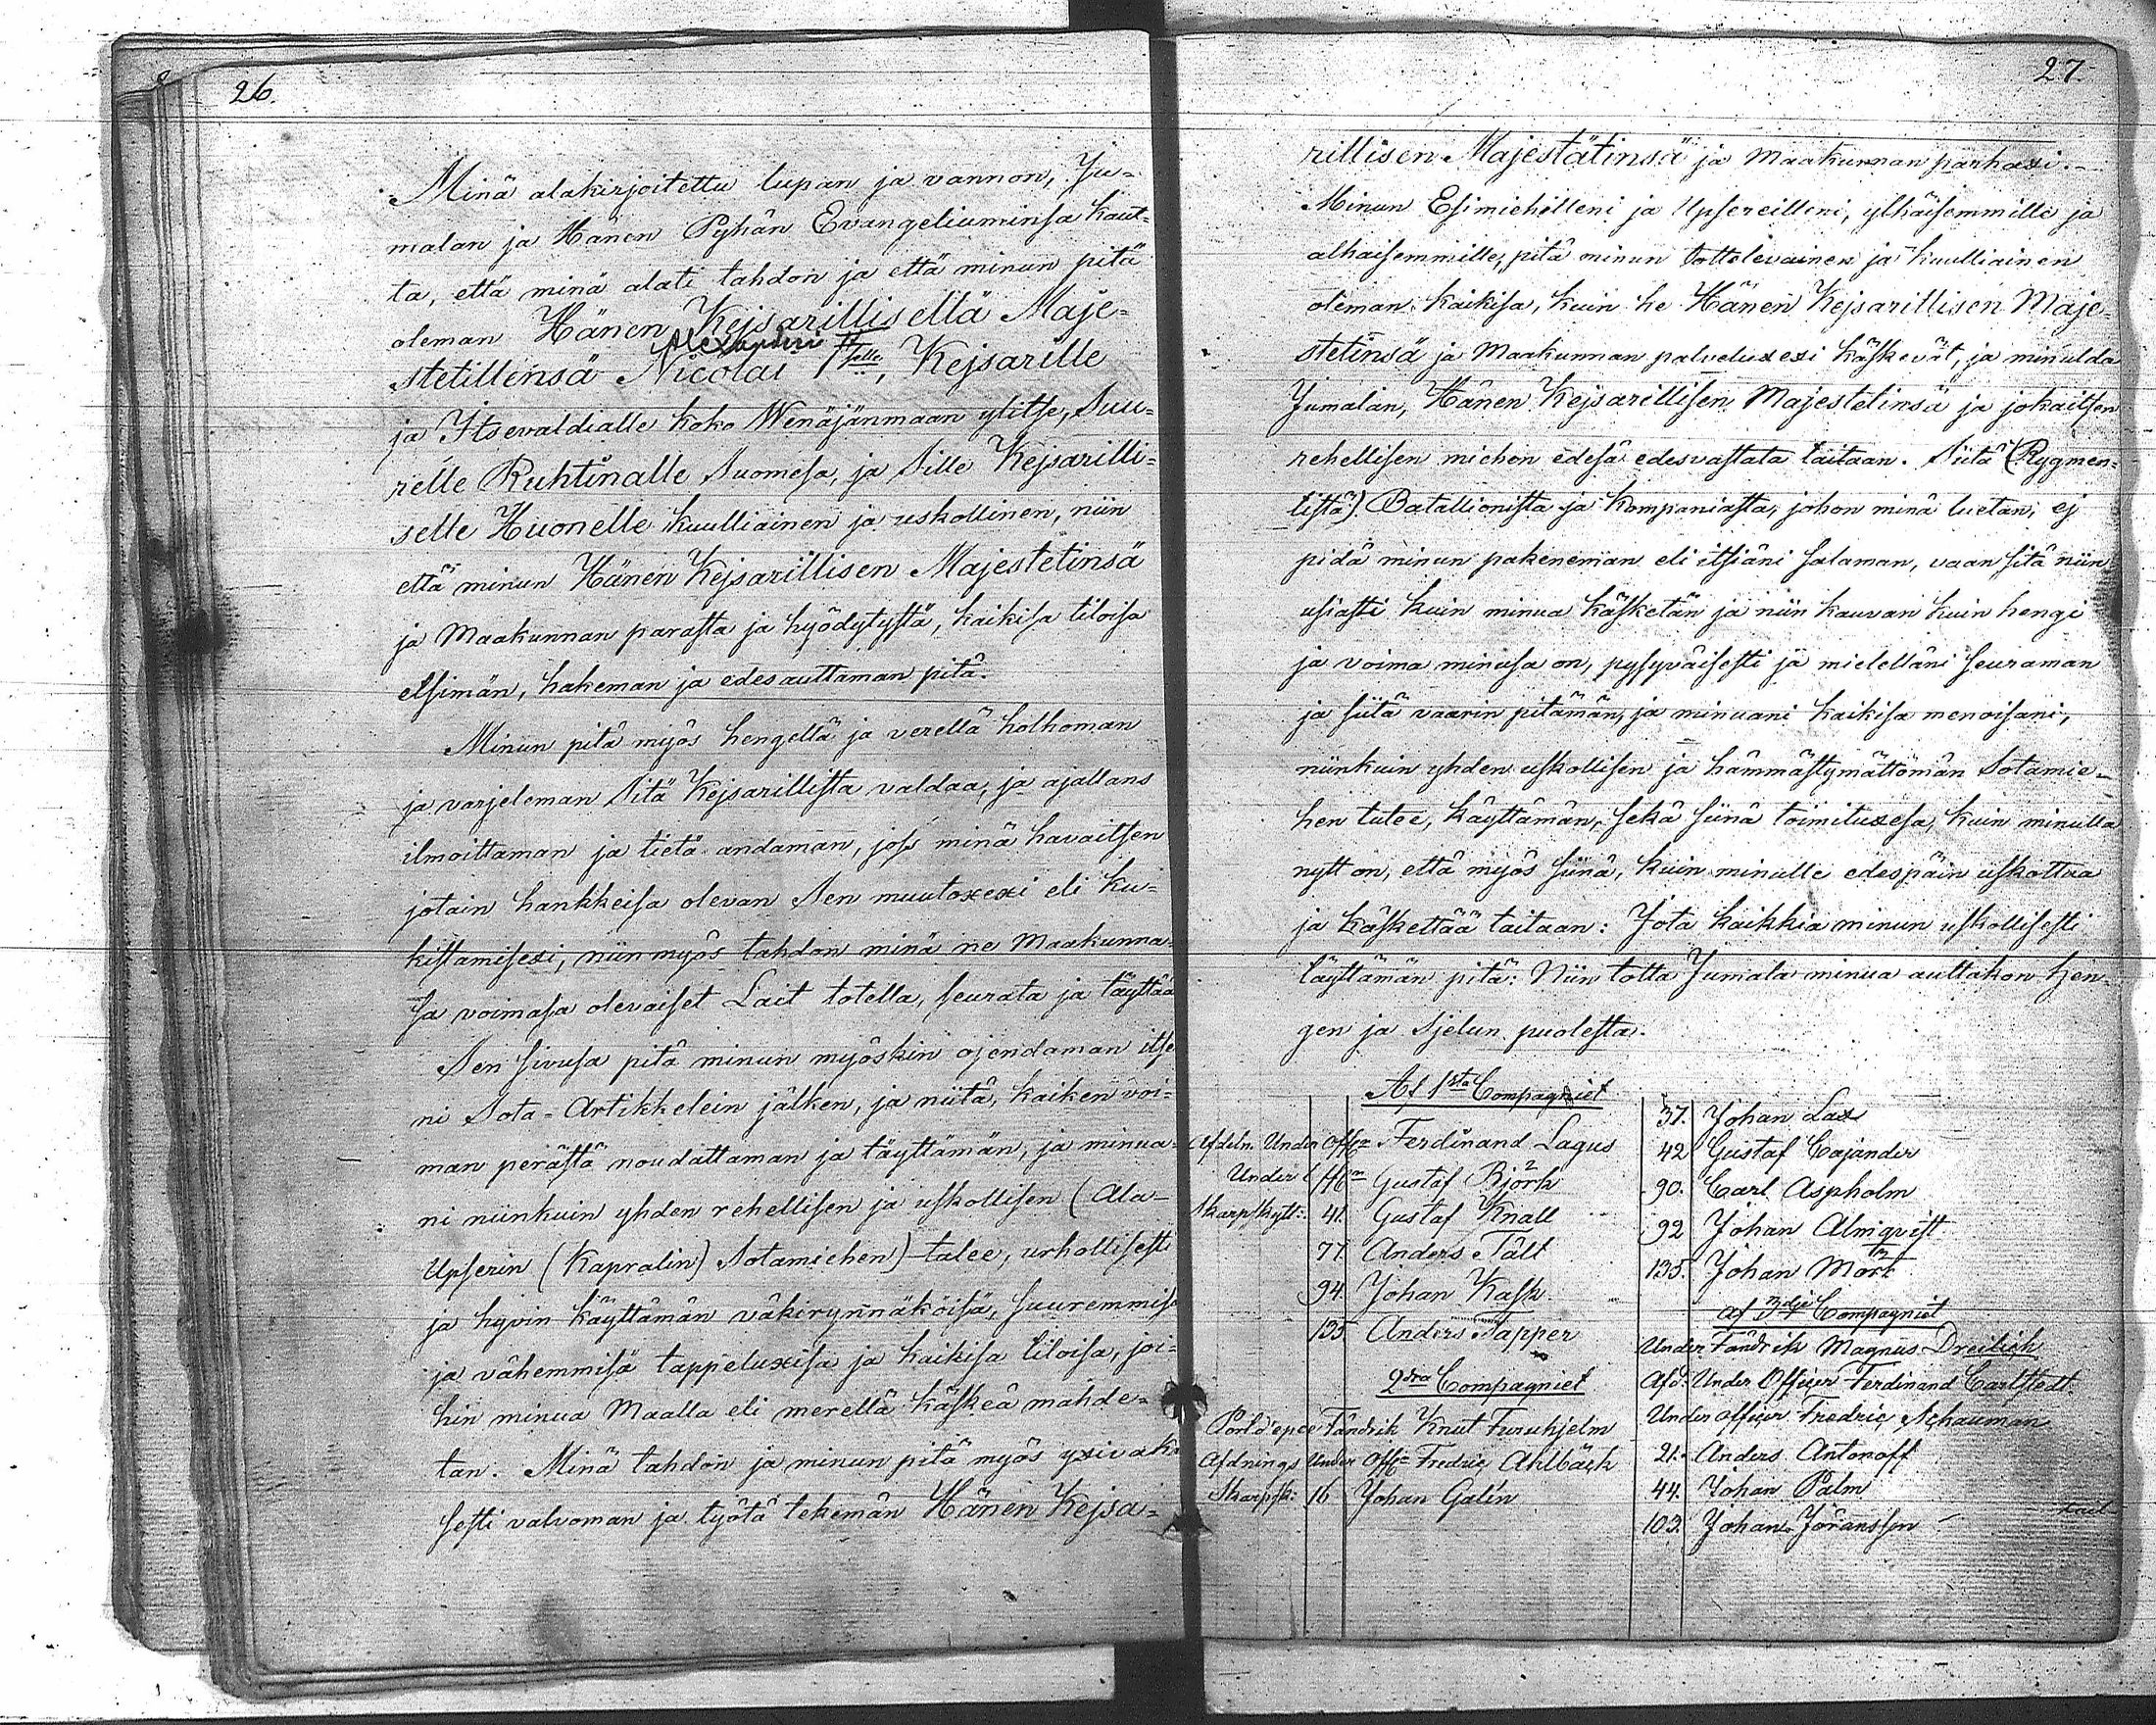 26.
Minä alakirjoitettu lupan ja vannon, Ju=
malan ja Hänen Pyhän Evangeliuminsa kaut=
ta, että minä alati tahdon ja että minun pitä
oleman Hänen Kejsarillisellä Maje=
Alexanderi II
stetillensä Nicolai 1selle, Kejsarille
ja Itsevaldialle koko Wenäjänmaan ylitse, Suu=
relle Ruhtinalle Suomesa, ja Sille Kejsarilli=
selle Huonelle kuulliainen ja uskollinen, niin
että minun Hänen Kejsarillisen Majestetinsä
ja Maakunnan parasta ja hyödytystä, kaikisa tiloisa
etsimän, hakeman ja edesauttaman pitä.
Minun pitä myös hengellä ja verellä holhoman
ja varjeleman Sitä Kejsarillista valdaa, ja ajallans
ilmoittaman ja tietä andaman, jos minä havaitsen
jotain hankkeisa olevan Sen muutoxexi eli ku=
kistamisexi, niin myös tahdon minä ne Maakunna=
sa voimasa olevaiset Lait totella, seurata ja täyttää
Sen sivusa pitä minun myöskin ojendaman itse
ni Sota-Artikkelein jälken, ja niitä, kaiken voi=
man perästä noudattaman ja täyttämän, ja minua=
ni niinkuin yhden rehellisen ja uskollisen (Ala-
Upserin (Kapralin) Sotamiehen) tulee, urhollisesti
ja hyvin käyttämän väkirynnäköisä, suuremmisa
ja vähemmisä tappeluxisa ja kaikisa tiloisa, joi=
hin minua Maalla eli merellä käskeä mahde=
tan. Minä tahdon ja minun pitä myös yxivaka
sesti valvoman ja työtä tekemän Hänen Kejsa=
27
rillisen Majestätinsä ja Maakunnan parhaxi.
Minun Esimiehilleni ja Upsereilleni, ylhäisemmille ja
alhaisemmille, pitä minun tottelevainen ja kuulliainen
oleman kaikisa, kuin he Hänen Kejsarillisen Maje=
stetinsä ja Maakunnan palveluxexi käskevät, ja minulda
Jumalan, Hänen Kejsarillisen Majestetinsä ja jokaitsen
rehellisen miehen edesä edesvastata taitaan. Siitä (Rygmen=
tistä) Batallionista ja Kompaniasta, johon minä luetan, ej
pidä minun pakeneman eli itsiäni salaman, vaan sitä niin
usiasti kuin minua käsketän ja niin kauvan kuin hengi
ja voima minusa on, pysyväisesti ja mielelläni seuraman
ja siitä vaarin pitämän, ja minuani kaikisa menoisani,
niinkuin yhden uskollisen ja hämmästymättömän Sotamie=
hen tulee, käyttämän, sekä siinä toimituxesa, kuin minulla
nytt on, että myös siinä, kuin minulle edespäin uskottua
ja käskettää taitaan: Jota kaikkia minun uskollisesti
täyttämän pitä: Niin totta Jumala minua auttakon hen=
gen ja Sjelun puolesta.
Af 1sta Compagniet
Afdeln. Under Off. Ferdinand Lagus
Gustaf Björk
Skarpskytt: 41. Gustaf Knall
77. Anders Tält
94. Johan Kask
135. Anders Tapper
2dra Compagniet
Port d'epée Fändrik Knut Furuhjelm
Afdnings Under Off. Fredric Ahlbäck
Skarpsk: 16 Johan Galin
37. Johan Lax
42 Gustaf Cajander
90. Carl Aspholm
92 Johan Almqvist
135. Johan Mörk
af 3dje Compagniet
Under Fändrik Magnus Dreilich
Afd. Under Officer Ferdinand Carlstedt
Under officer Fredric Schauman
21. Anders Antonoff
44. Johan Palm
103. Johan Jöransson